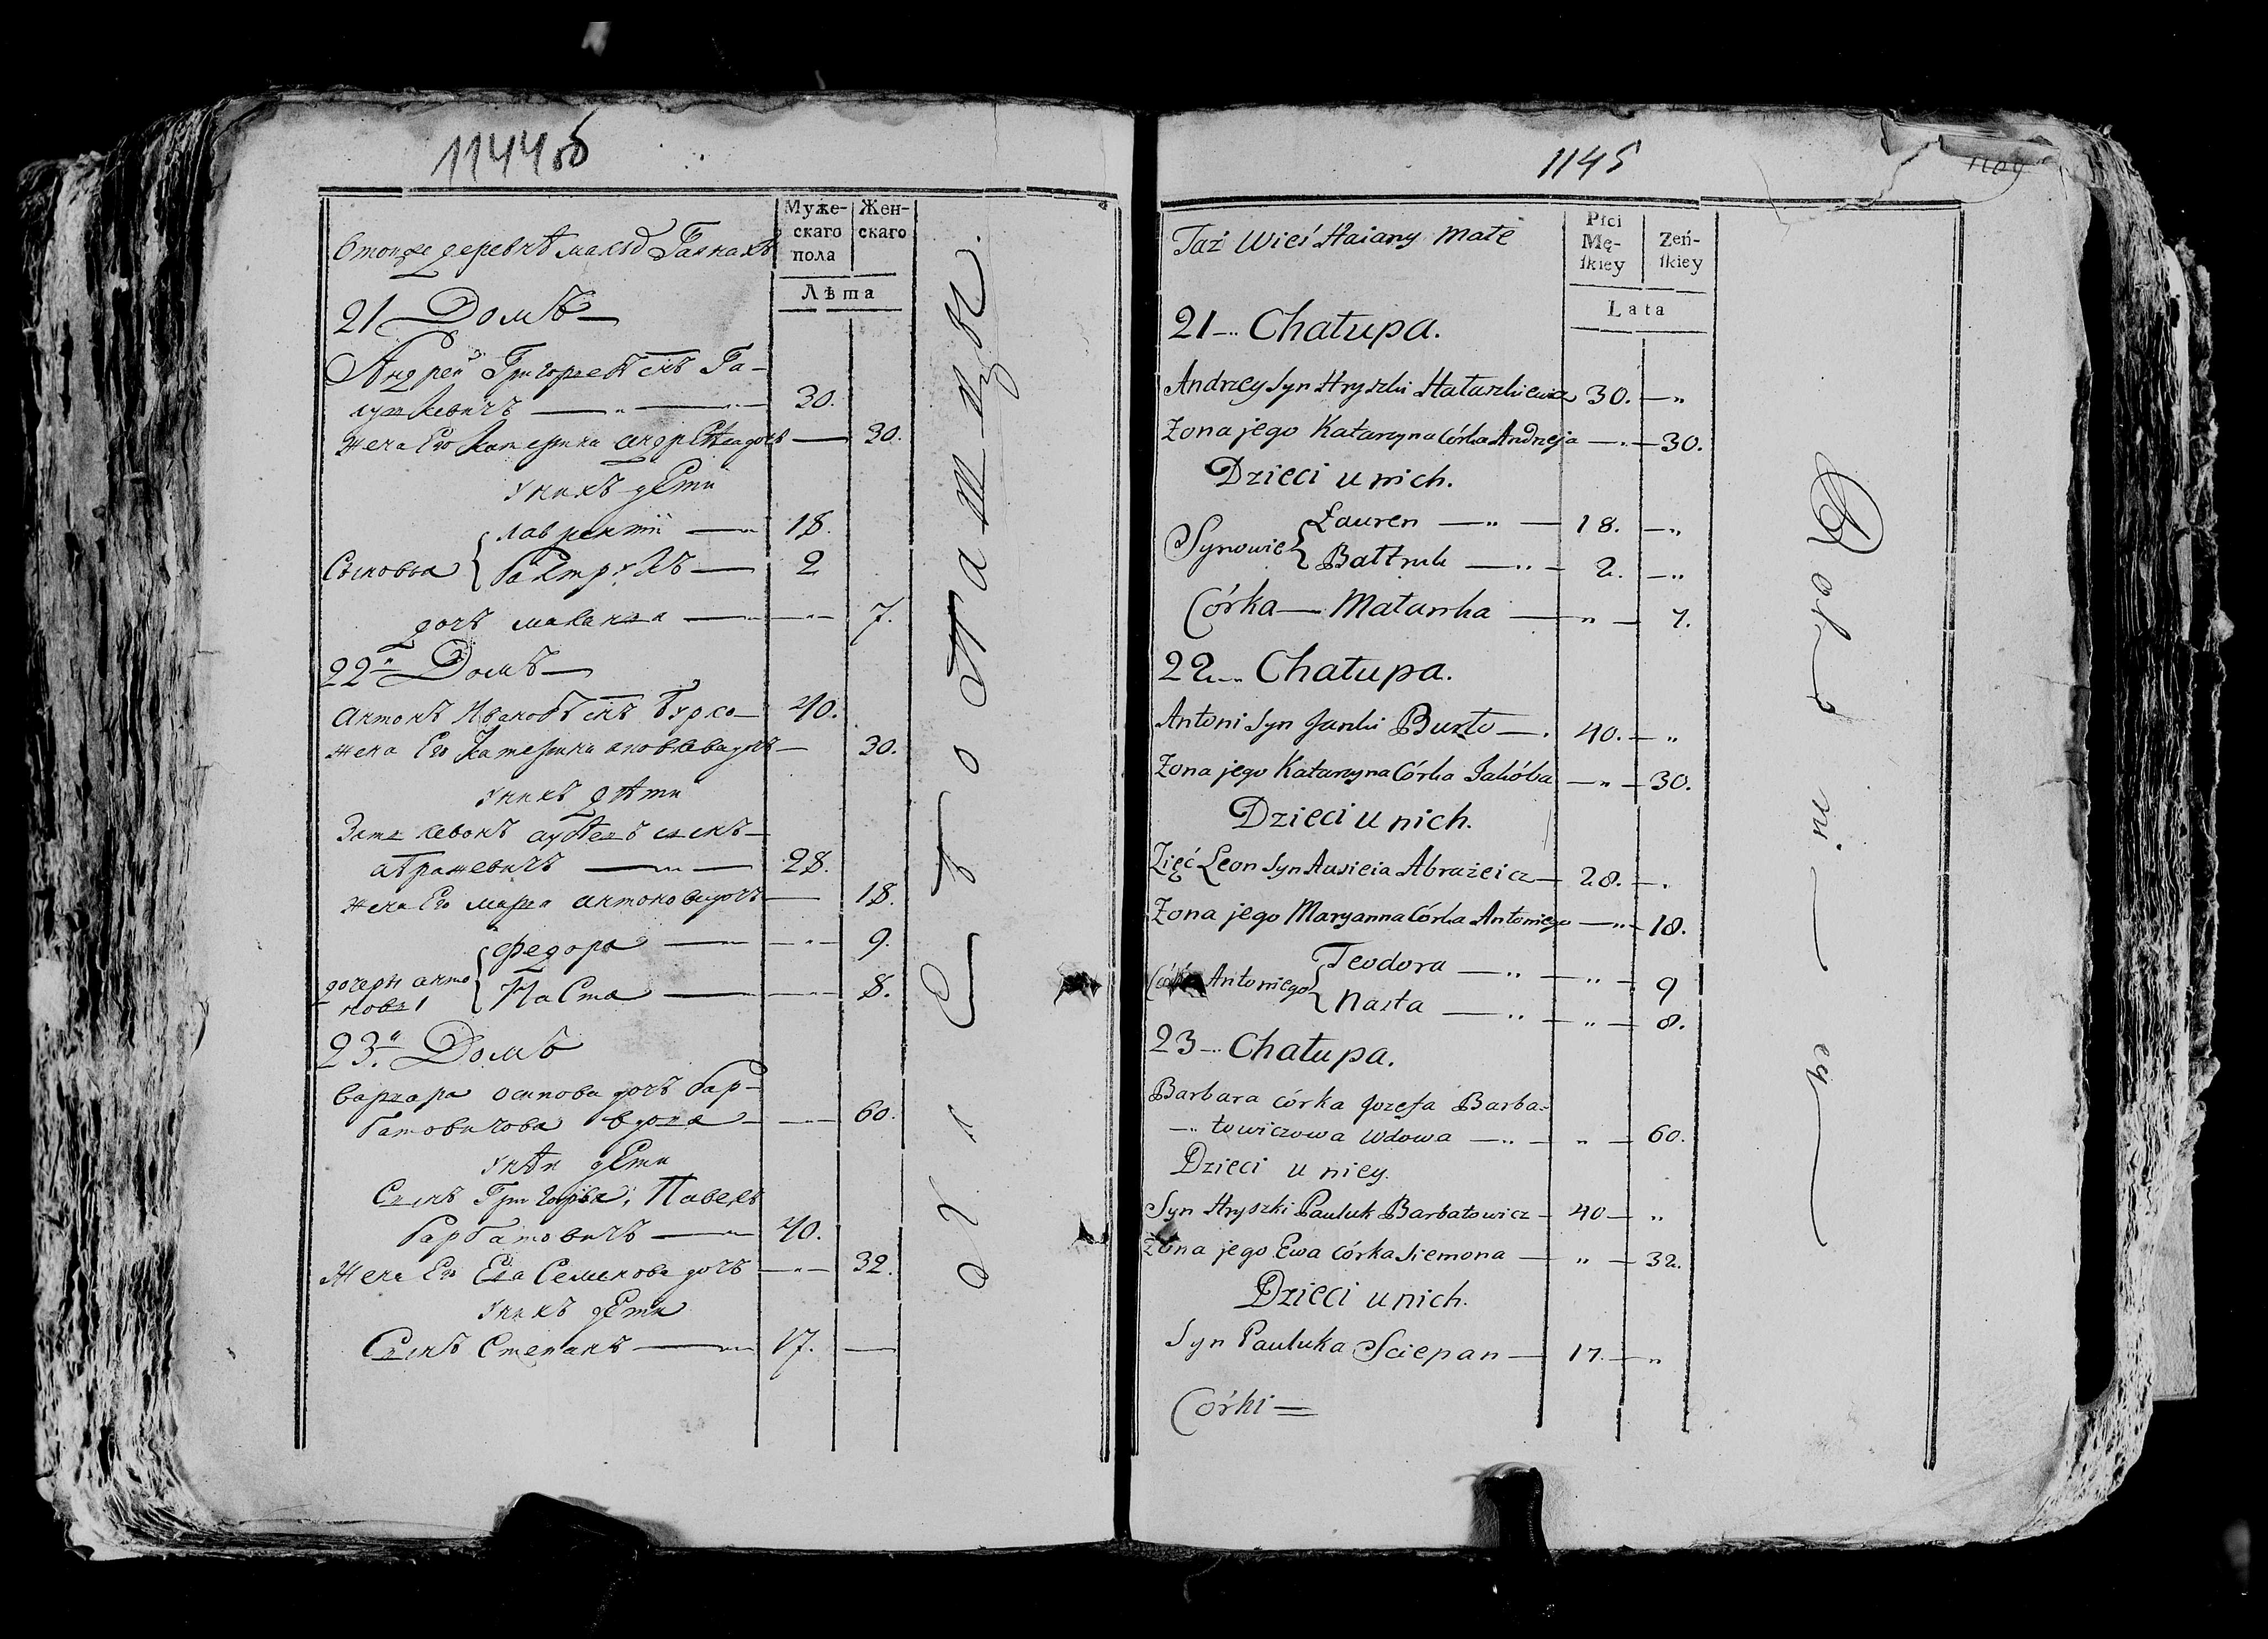 1144об
Муже-
скаго
пола
Жен-
скаго
Лѣта
Втойже деревнѣ малыхъ Гаянахъ
21 Домъ
Андрей Григорьевъ снъ Га-
лушкевичъ 30.
жена Его Катерина андрѣева дочь 30.
унихъ дѣти
Сыновья { лаврентiй 18.
Балтрукъ 2
дочь маланья 7.
22 Домъ
антонъ Ивановъ снъ Бурсо 40.
жена Его Катерина яковлева дочь 30.
унихъ дѣти
Зять левонъ сынъ
абражевичъ 28.
жена Его марья антонова дочь 18.
дочери анто
новы { Федора 9.
Наста 8.
23. Домъ
Варвара осипова дочь бар-
батовичова вдова 60.
унѣи дѣти
Сынъ Григорья, Павелъ
барбатовичъ 40.
Жена Его Ева Семенова дочь 32.
унихъ дѣти
Сынъ Степанъ 17.
1145
1109
Płci
Mę-
ſkiey
Zeń-
ſkiey
Lata
Taż Wieś Haiany Małe
21 Chałupa.
Andrzey Syn Hryszki Hałuszkiewicz 30. "
Żona jego Katarzyna Córka Andrzeja " 30.
Dzieci u nich.
Synowie { Łauren " 18. "
Bałtruk " 2. "
Córka Małanka " 7.
22 Chałupa.
Antoni Syn Janki Burto 40. "
Żona jego Katarzyna Córka Jakóba " 30.
Dzieci u nich.
Zięć Leon Syn Ausieia Abrażeicz 28.
Żona jego Maryanna Córka Antoniego " 18.
Antoniego { Teodora " " 9
Nasta " " 8.
23 Chałupa.
Barbara córka Jozefa Barba-
towiczowa Wdowa " " 60.
Dzieci u niey.
Syn Hryszki Pauluk Barbatowicz 40 "
Żona jego Ewa córka Siemona " 32.
Dzieci u nich.
Syn Pauluka Sciepan 17. "
Córki